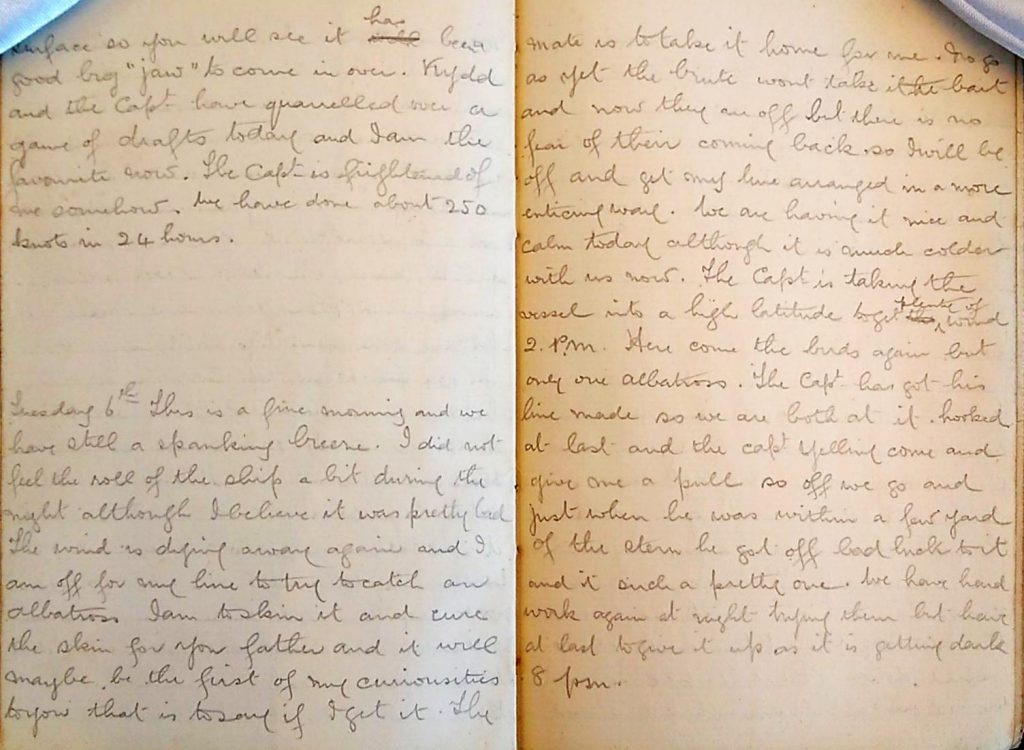 surface so you will see it has been
good big "jaw" to come in over. Kydd
and the Capt. have quarrelled over a
game of drafts today and I am the
favourite now. The Capt. is frightened of
me somehow. We have done about 250
knots in 24 hours.
Tuesday 6th This is a fine morning and we
have still a spanking breeze. I did not
feel the roll of the ship a bit during the
night although I believe it was pretty bad
The wind is dying away again and I
am off for my line to try to catch an
albatross I am to skin it and cure
the skin for you father and it will
maybe be the first of my curiousities
to you that is to say if I get it. The
mate is to take it home for me. No go
as yet the brute wont take it the bait
and now they are off but there is no
fear of their coming back so I will be
off and get my line arranged in a more
enticing way. We are having it nice and
calm today although it is much colder
with us now. The Capt is taking the
vessel into a high latitude to get plenty of wind
2. P.m. Here come the birds again but
only one albatross. The Capt. has got his
line made so we are both at it. hooked
at last and the capt yelling come and
give me a pull so off we go and
just when he was within a few yard
of the stern he got off bad luck to it
and it such a pretty one. We have hard
work again at night trying them but have
at last to give it up as it is getting dark
8 pm.